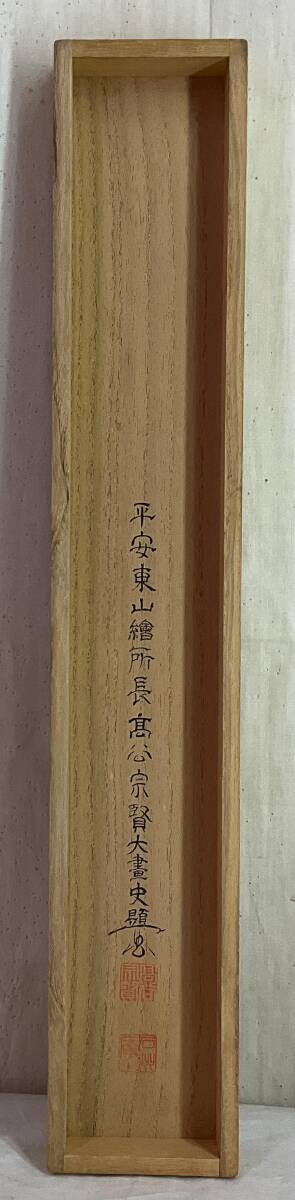 平安東山繪所長高公宗賢大畫史題